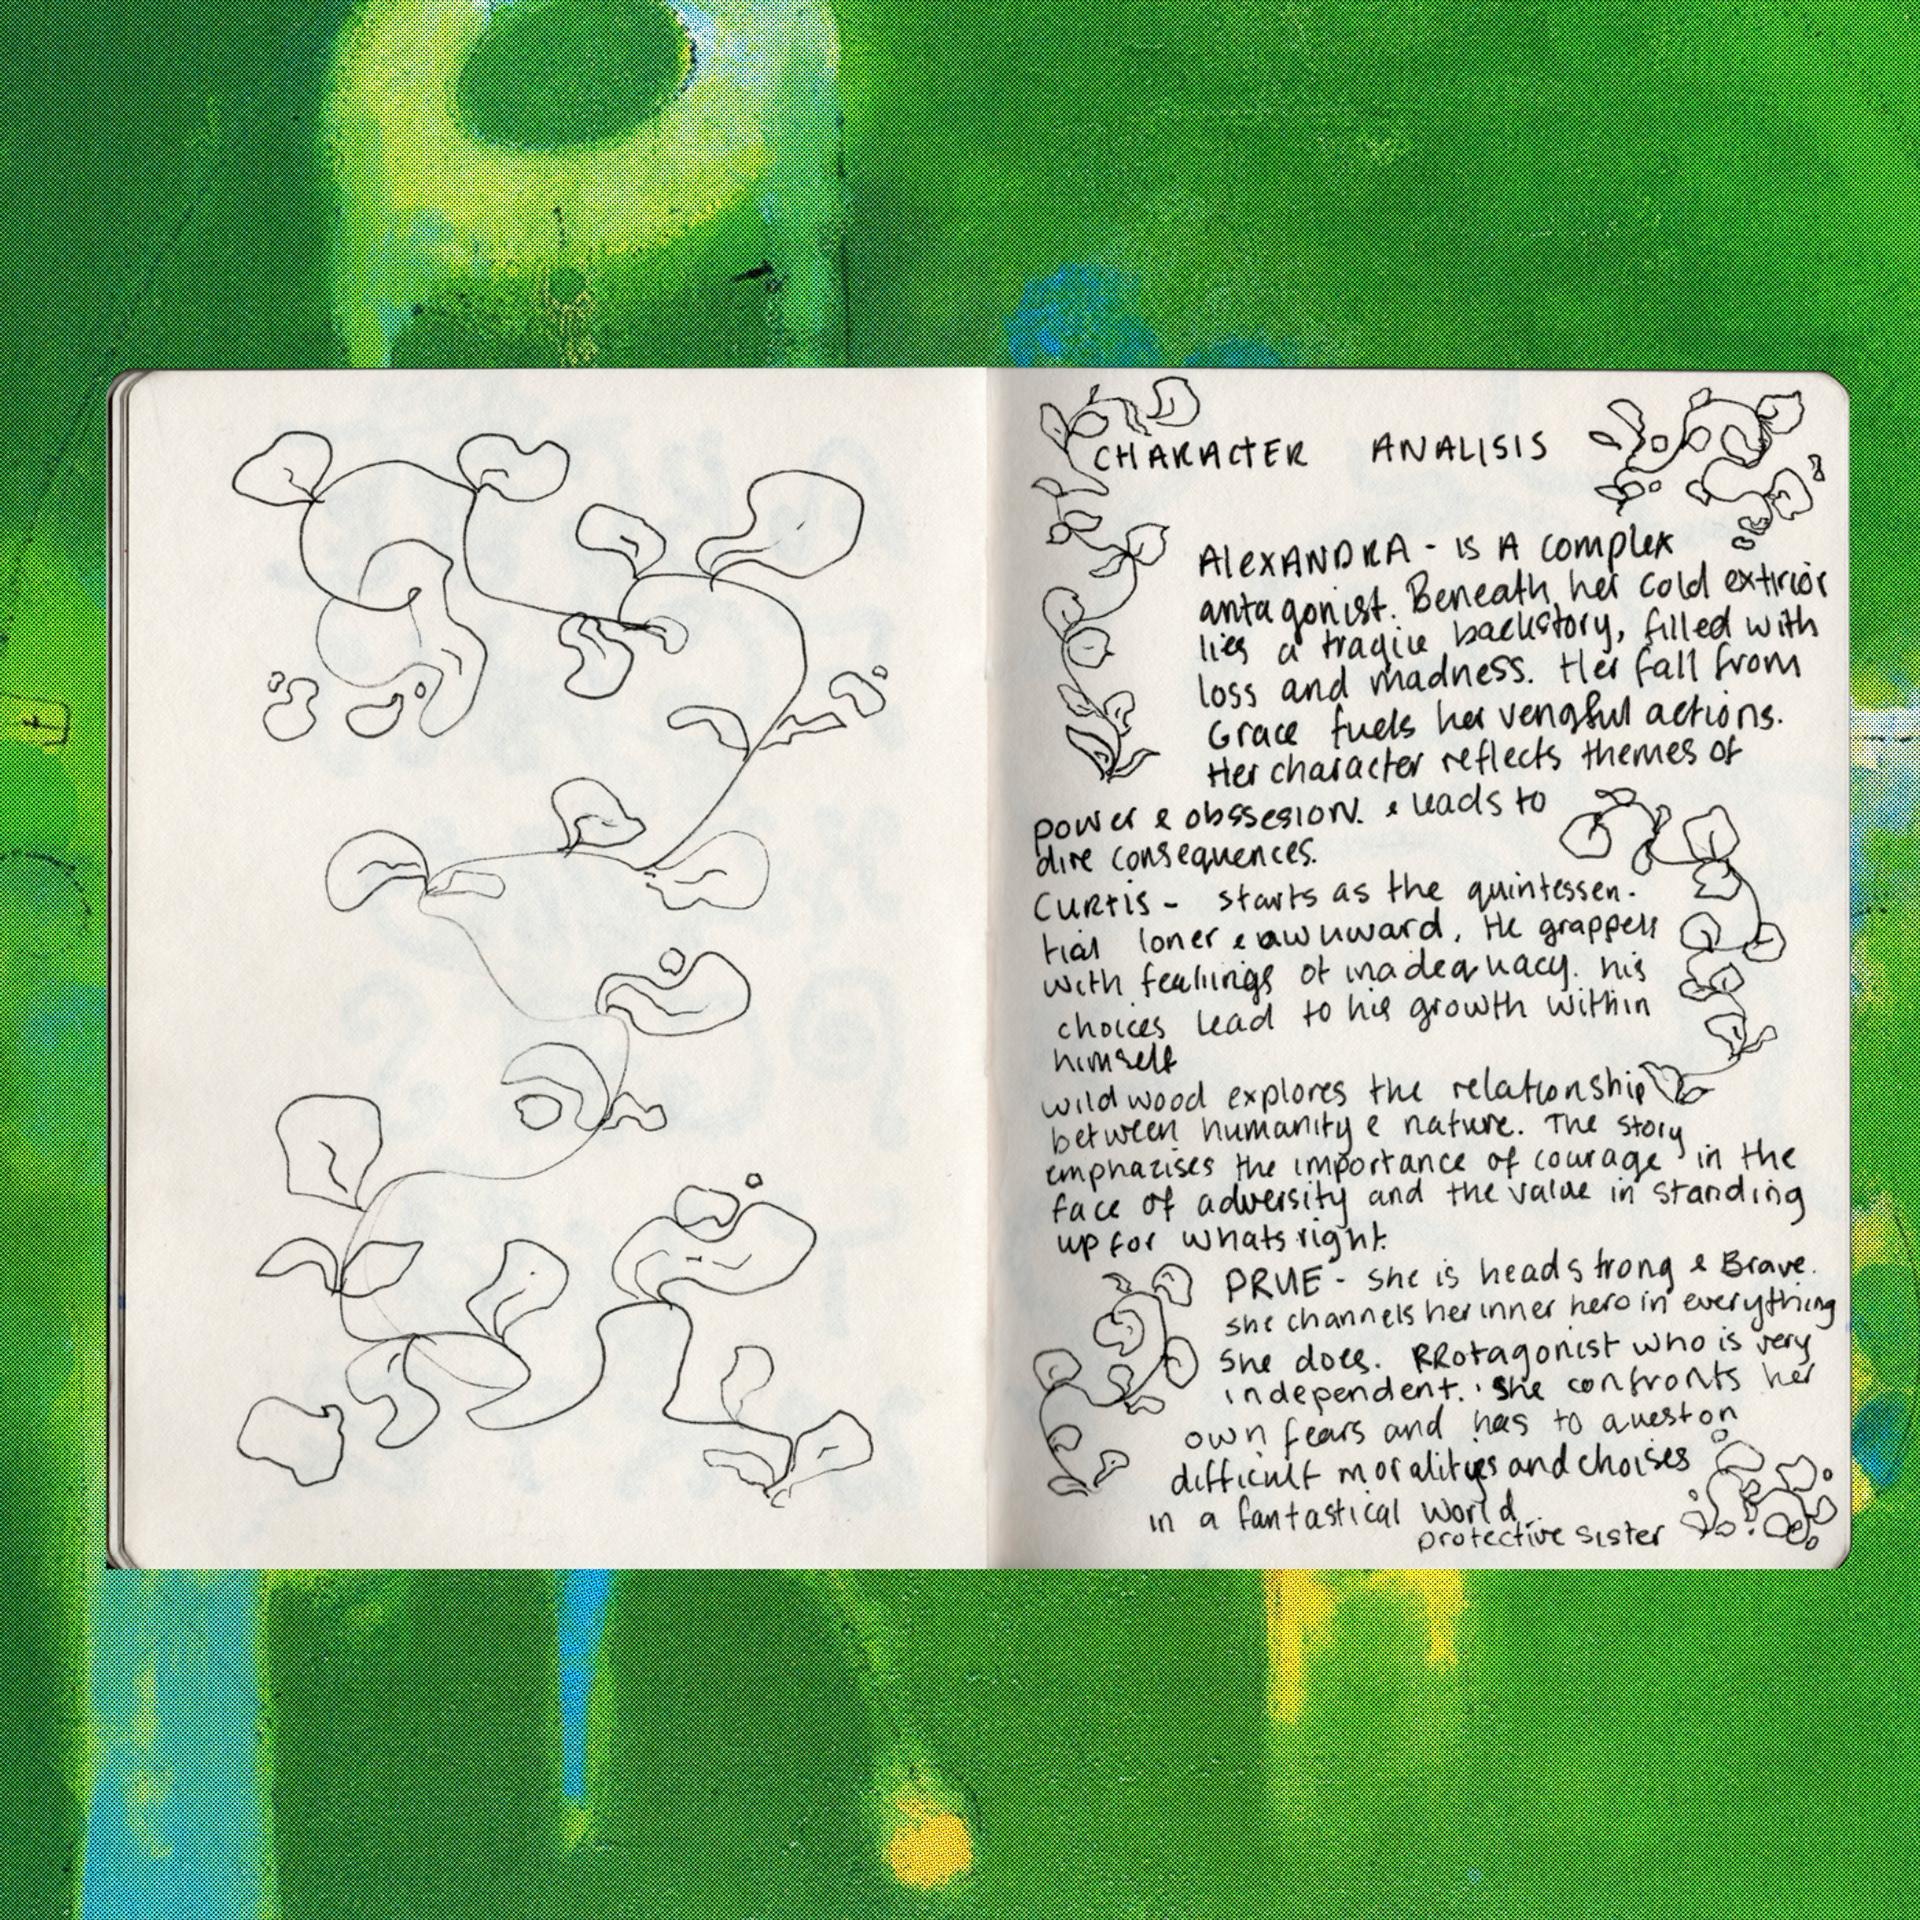 CHARACTER ANALISIS
AlexANDRA - is A complex
antagonist. Beneath her cold extirior
lies a tragic backstory, filled with
loss and madness. Her fall from
Grace fuels her vengful actions.
Her character reflects themes of
power & obssesion. & leads to
dire consequences.
CURTIS - starts as the quintessen-
tial loner & awkward. He grappels
with feelings of inadequacy. his
choices lead to his growth within
himself
wildwood explores the relationship
between humanity & nature. The story
emphazises the importance of courage in the
face of adversity and the value in standing
up for whats right.
PRUE - she is headstrong & Brave.
she channels her inner hero in everything
she does. PRotagonist who is very
independent. she confronts her
own fears and has to queston
difficult moralityes and choises
in a fantastical world
protective sister
t